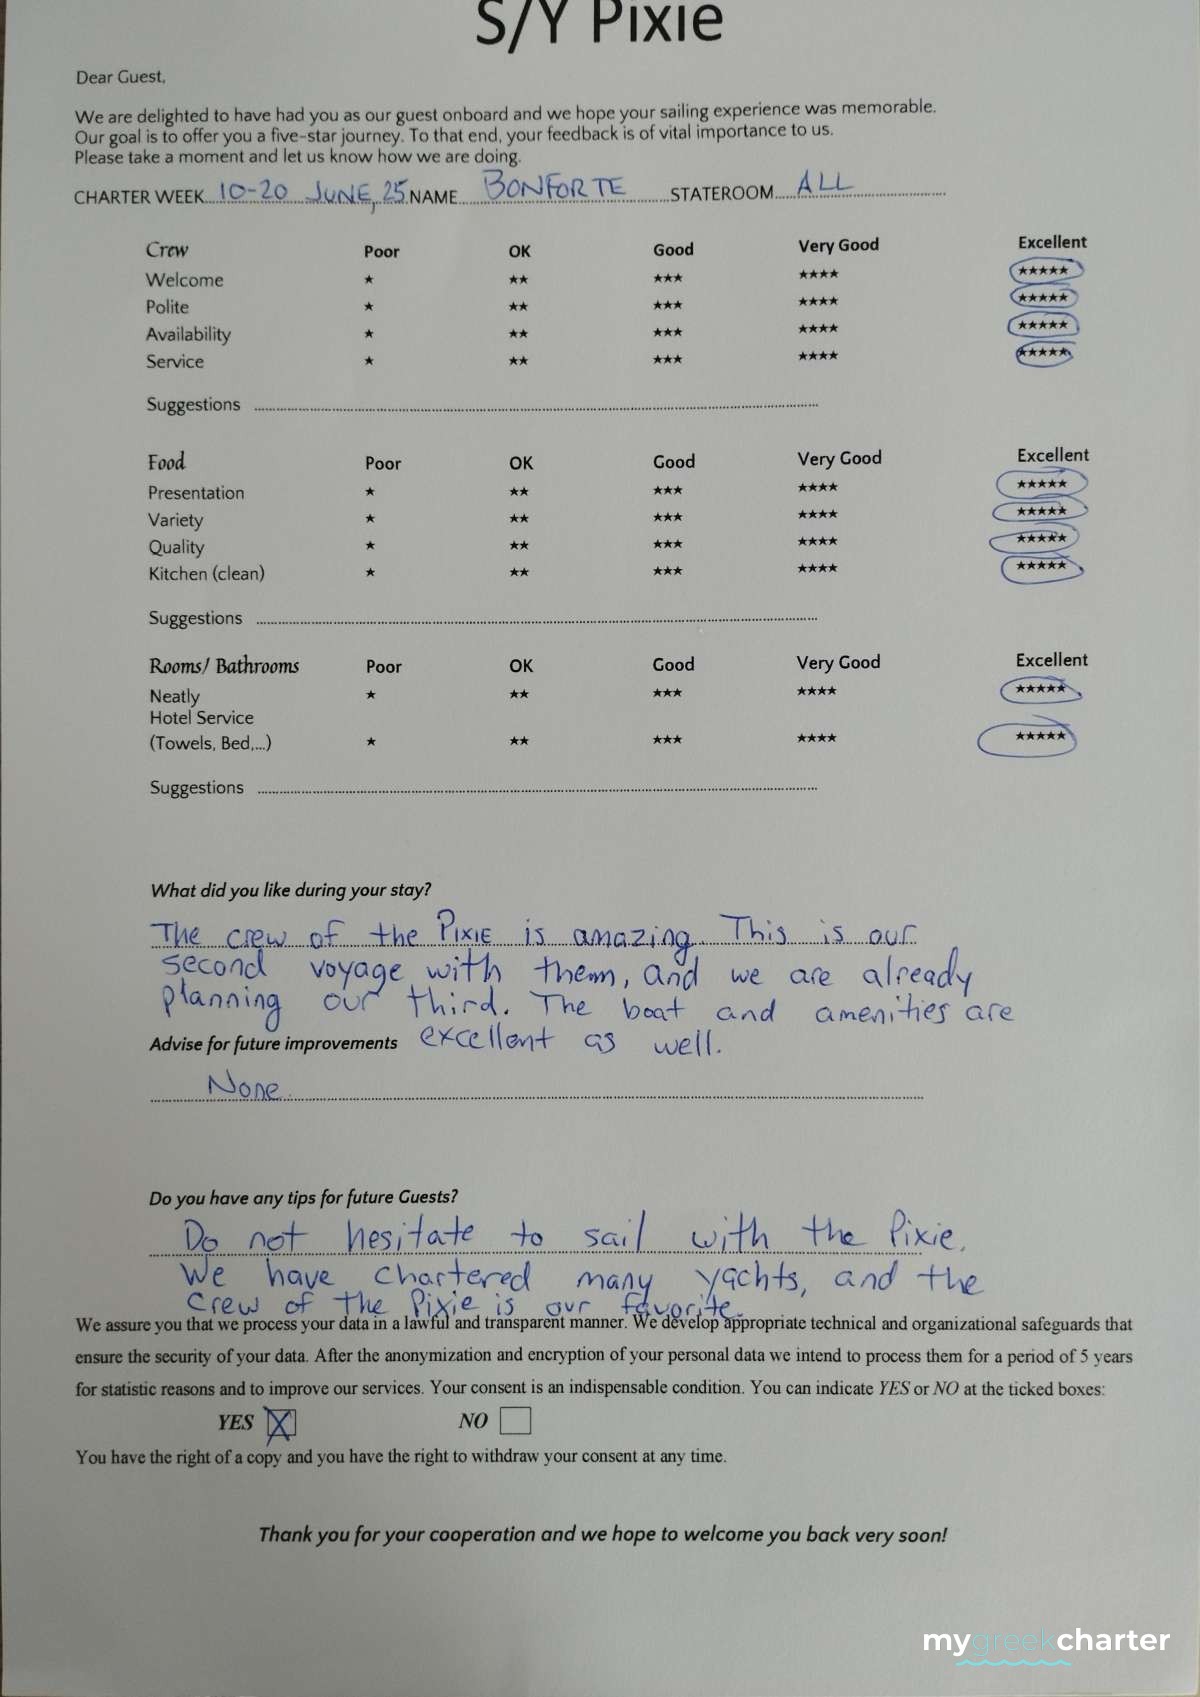 S/Y Pixie
Dear Guest,
We are delighted to have had you as our guest onboard and we hope your sailing experience was memorable.
Our goal is to offer you a five-star journey. To that end, your feedback is of vital importance to us.
Please take a moment and let us know how we are doing.
CHARTER WEEK 10-20 JUNE, 25 NAME BONFORTE STATEROOM ALL
Crew Poor OK Good Very Good Excellent
Welcome ★ ★★ ★★★ ★★★★ ★★★★★
Polite ★ ★★ ★★★ ★★★★ ★★★★★
Availability ★ ★★ ★★★ ★★★★ ★★★★★
Service ★ ★★ ★★★ ★★★★ ★★★★★
Suggestions
Food Poor OK Good Very Good Excellent
Presentation ★ ★★ ★★★ ★★★★ ★★★★★
Variety ★ ★★ ★★★ ★★★★ ★★★★★
Quality ★ ★★ ★★★ ★★★★ ★★★★★
Kitchen (clean) ★ ★★ ★★★ ★★★★ ★★★★★
Suggestions
Rooms/ Bathrooms Poor OK Good Very Good Excellent
Neatly ★ ★★ ★★★ ★★★★ ★★★★★
Hotel Service
(Towels, Bed,...) ★ ★★ ★★★ ★★★★ ★★★★★
Suggestions
What did you like during your stay?
The crew of the PIXIE is amazing. This is our
second voyage with them, and we are already
planning our third. The boat and amenities are
excellent as well.
Advise for future improvements
None
Do you have any tips for future Guests?
Do not hesitate to sail with the Pixie.
We have chartered many yachts, and the
crew of the Pixie is our favorite.
We assure you that we process your data in a lawful and transparent manner. We develop appropriate technical and organizational safeguards that
ensure the security of your data. After the anonymization and encryption of your personal data we intend to process them for a period of 5 years
for statistic reasons and to improve our services. Your consent is an indispensable condition. You can indicate YES or NO at the ticked boxes:
YES X NO
You have the right of a copy and you have the right to withdraw your consent at any time.
Thank you for your cooperation and we hope to welcome you back very soon!
mygreekcharter